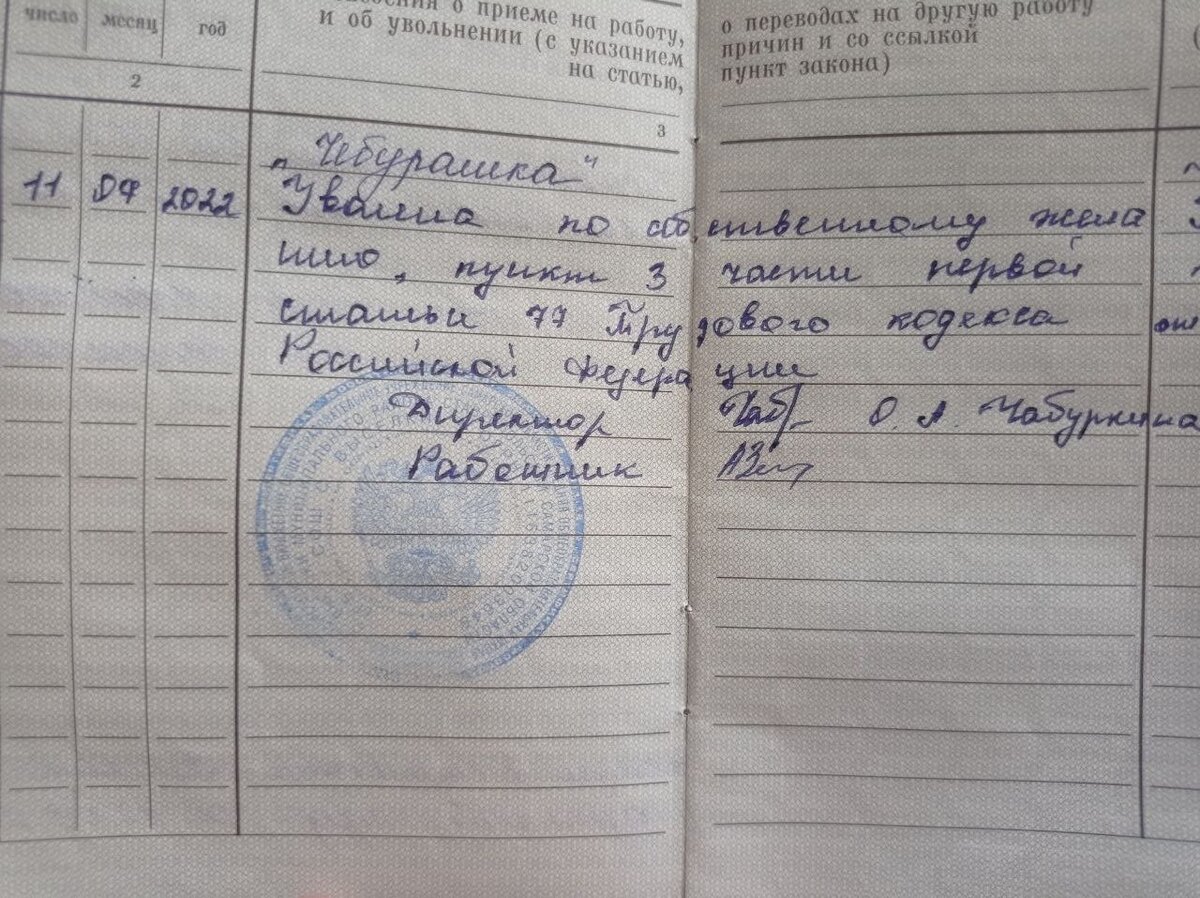 число месяц год
о приеме на работу, о переводах на другую работу
и об увольнении (с указанием причин и со ссылкой
на статью, пункт закона)
2 3
„Чебурашка“
11 04 2022 Уволена по собственному жела
нию, пункт 3 части первой
статьи 77 Трудового кодекса
Российской Федерации
Директор О. А. Чабуркина
Работник
САМАРСКОЙ ОБЛАСТИ